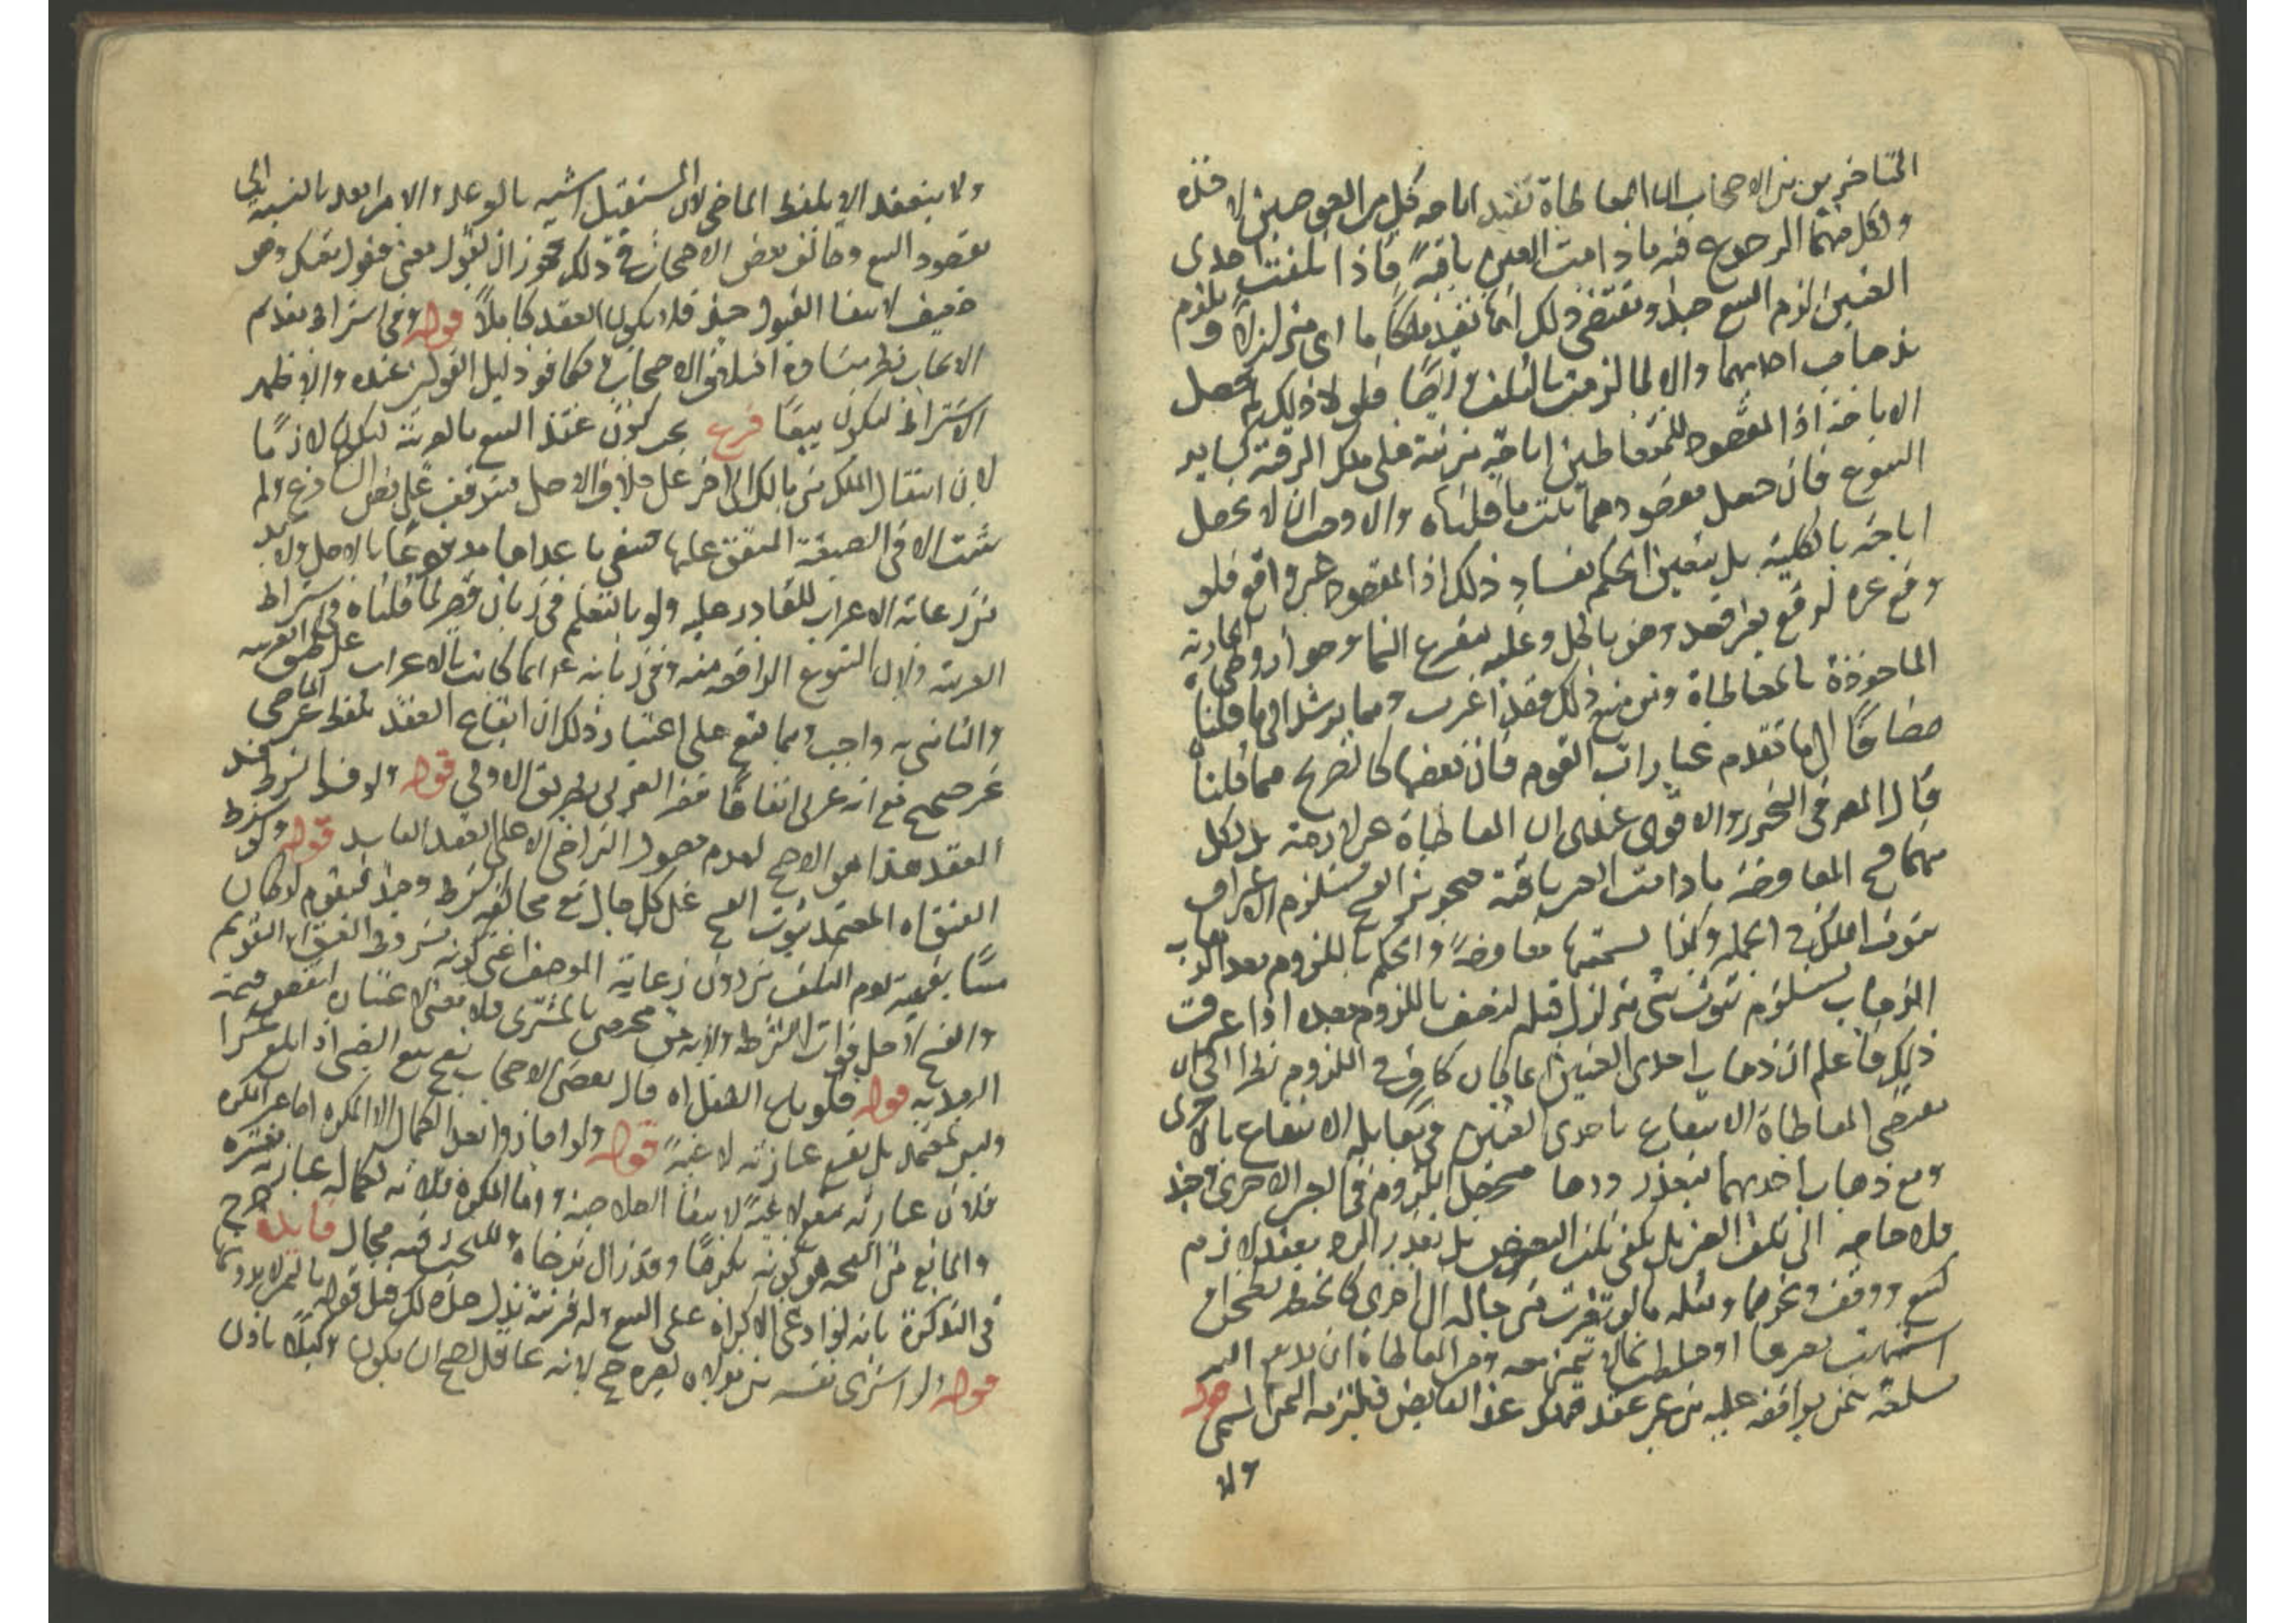 المتاخرين من الاصحاب ان المعاطاة تفيد اباحة كل من العوضين لاخذه
ولكل منهما الرجوع فيه ما دامت العين باقية فاذا تلفت احدى
العينين لزم البيع حينئذ ويقتضى ذلك انها تفيد ملكا ما اى متزلزلا ويلزم
بذهاب احدهما والا لما لزمت بالتلف وايضا فلولا ذلك لم تحصل
الاباحة اذ المقصود للمتعاطيين اباحة مترتبة على ملك الرقبة كساير
البيوع فان حصل مقصودهما ثبت ما قلناه والا وجب ان لا تحصل
اباحة بالكلية بل يتعين الحكم بفساد ذلك اذ المقصود غير واقع فلو
وقع غيره لوقع بغير قصد وهو باطل وعليه يتفرع النماء وجواز وطى الجارية
الماخوذة بالمعاطاة ومن منع ذلك فقد اغرب ومما يرشد الى ما قلناه
مضافا الى ما تقدم عبارات القوم فان بعضها كالتصريح مما قلناه
قال المص فى التحرير والاقوى عندى ان المعاطاة غير لازمة بل لكل
منهما فسخ المعاوضة ما دامت العين باقية فتجويز الفسخ يستلزم الاعتراف
بثبوت الملك فى الجملة وكذا تسميتها معاوضة والحكم باللزوم بعد الذهاب
الذهاب يستلزم ثبوت شى متزلزل قبله ليتصف باللزوم بعده اذا عرفت
ذلك فاعلم ان ذهاب احدى العينين انما كان كافيا فى اللزوم نظرا الى ان
مقتضى المعاطاة الانتفاع باحدى العينين فى مقابلة الانتفاع بالاخرى
ومع ذهاب احدهما يتعذر ردها فيحصل اللزوم فى العين الاخرى وحينئذ
فلا حاجة الى تلف العين بل يكفى تلف البعض بل تعذر الرد بعقد لازم
كبيع ووقف ونحوهما ومثله ما لو تغيرت من حالة الى اخرى كالحنطة تطحن او
اشتبهت بغيرها او خلطت بما لا تتميز معه ومن المعاطاة ان يدفع اليه
سلعة بثمن يوافقه عليه من غير عقد فيملك عند القابض فيلزمه الثمن المسمى قوله
ولا
ولا ينعقد الا بلفظ الماضى لان المستقبل اشبه بالوعد والامر ابعد بالنسبة الى
مقصود البيع وخالف بعض الاصحاب فى ذلك فجوز ان يقول بعنى فيقول بعتك وهو
ضعيف لانتفاء القبول حينئذ فلا يكون العقد كاملا قوله وفى اشتراط تقديم
الايجاب نظر ينشا من اختلاف الاصحاب فكما فو دليل القولين عنده والاظهر
الاشتراط ليكون بيعا فرع يجب كون عقد البيع بالعربية ليكون لازما
لان انتقال الملك من مالك الى اخر على خلاف الاصل فيتوقف على نص الشارع ولم
يثبت الا فى الصيغة المتفق عليها فينتفى ما عداها مدفوعا بالاصل ولا بد
من رعاية الاعراب للقادر عليه ولو بالتعلم فى زمان قصير لما قلناه فى اشتراط
العربية ولان البيوع الواقعة منه وفى زمانه ع م انما كانت بالاعراب على طبق العربية
والتاسى به واجب ومما ينبه على اعتبار ذلك ان ايقاع العقد بلفظ غير الماضى
غير صحيح مع انه عربى اتفاقا فغير العربى بطريق الاولى قوله ولو فسد شرط فسد
العقد هذا هو الاصح لعدم حصول التراضى الا على العقد الفاسد قوله ولو شرط
العتق اه المعتمد ثبوت الفسخ على كل حال مع مخالفة الشرط وحينئذ فيقوم لو كان
ميتا بقيمته يوم التلف من دون رعاية الوصف اعنى كونه مشروط العتق اذ التقويم
والفسخ لاجل فوات الشرط والارش مختص بالمشترى فلا معنى لاعتبار انتقص قيمة
الرد به قوله فلو باع الطفل اه قال بعض الاصحاب يصح بيع الصبى اذا بلغ عشرا
وليس بمعتمد بل تقع عبارته لاغية قوله ولو اجازوا بعد الكمال الا المكره اما غير المكره
فلان عبارته تقع لاغية لانتفاء الصلاحية واما المكره فلانه لكمال عبارته معتبرة
والمانع من الصحة هو كونه مكرها وقد زال برضاه وللبحث فيه مجال فايدة صرح
فى التذكرة بانه لو ادعى الاكراه على البيع وله قرينة تدل على ذلك قبل قوله باليمين لا بدونها
قوله ولو اشترى نفسه من مولاه لغيره صح لانه عاقل يصح ان يكون وكيلا باذن